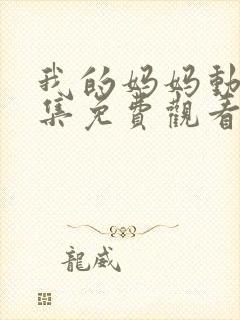 我的妈妈動
集免費觀看
龍威